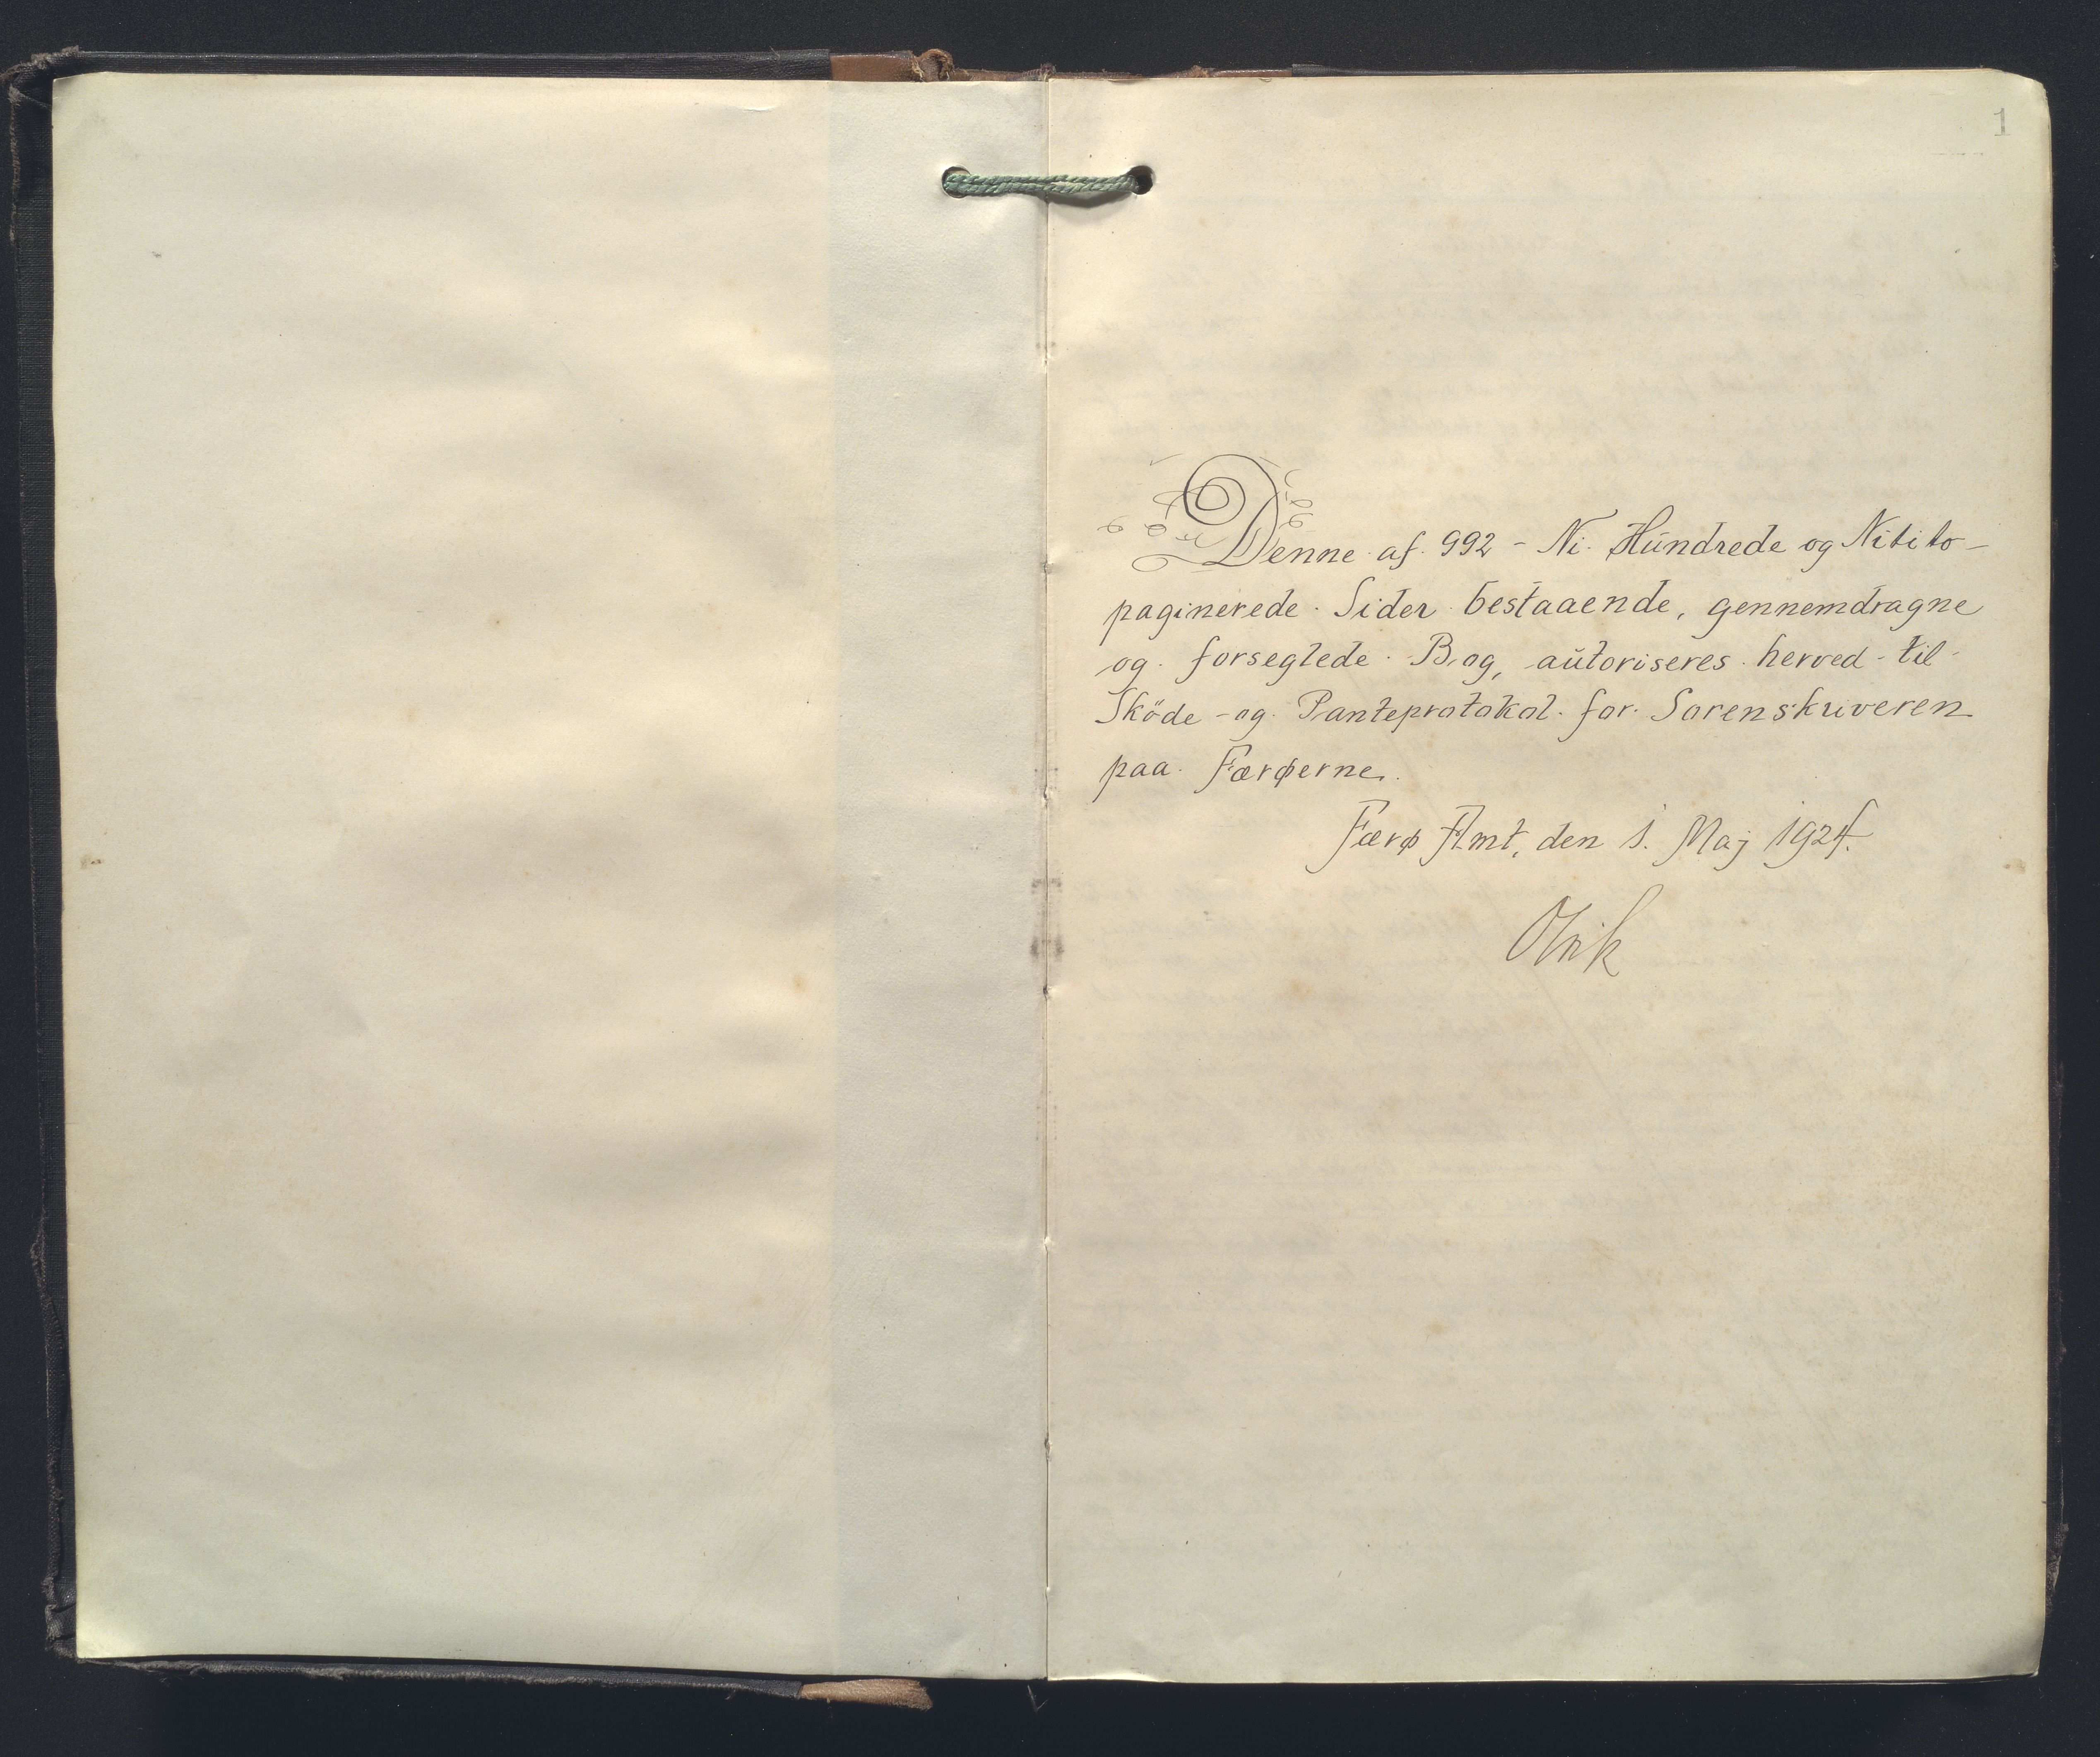 1
Denne af 992 - Ni Hundrede og Nitito -
paginerede Sider bestaaende, gennemdragne
og forseglede Bog, autoriseres herved til
Sköde - og Panteprotokol for Sorenskriveren
paa Færøerne.
Færø Amt, den 1. Maj 1924.